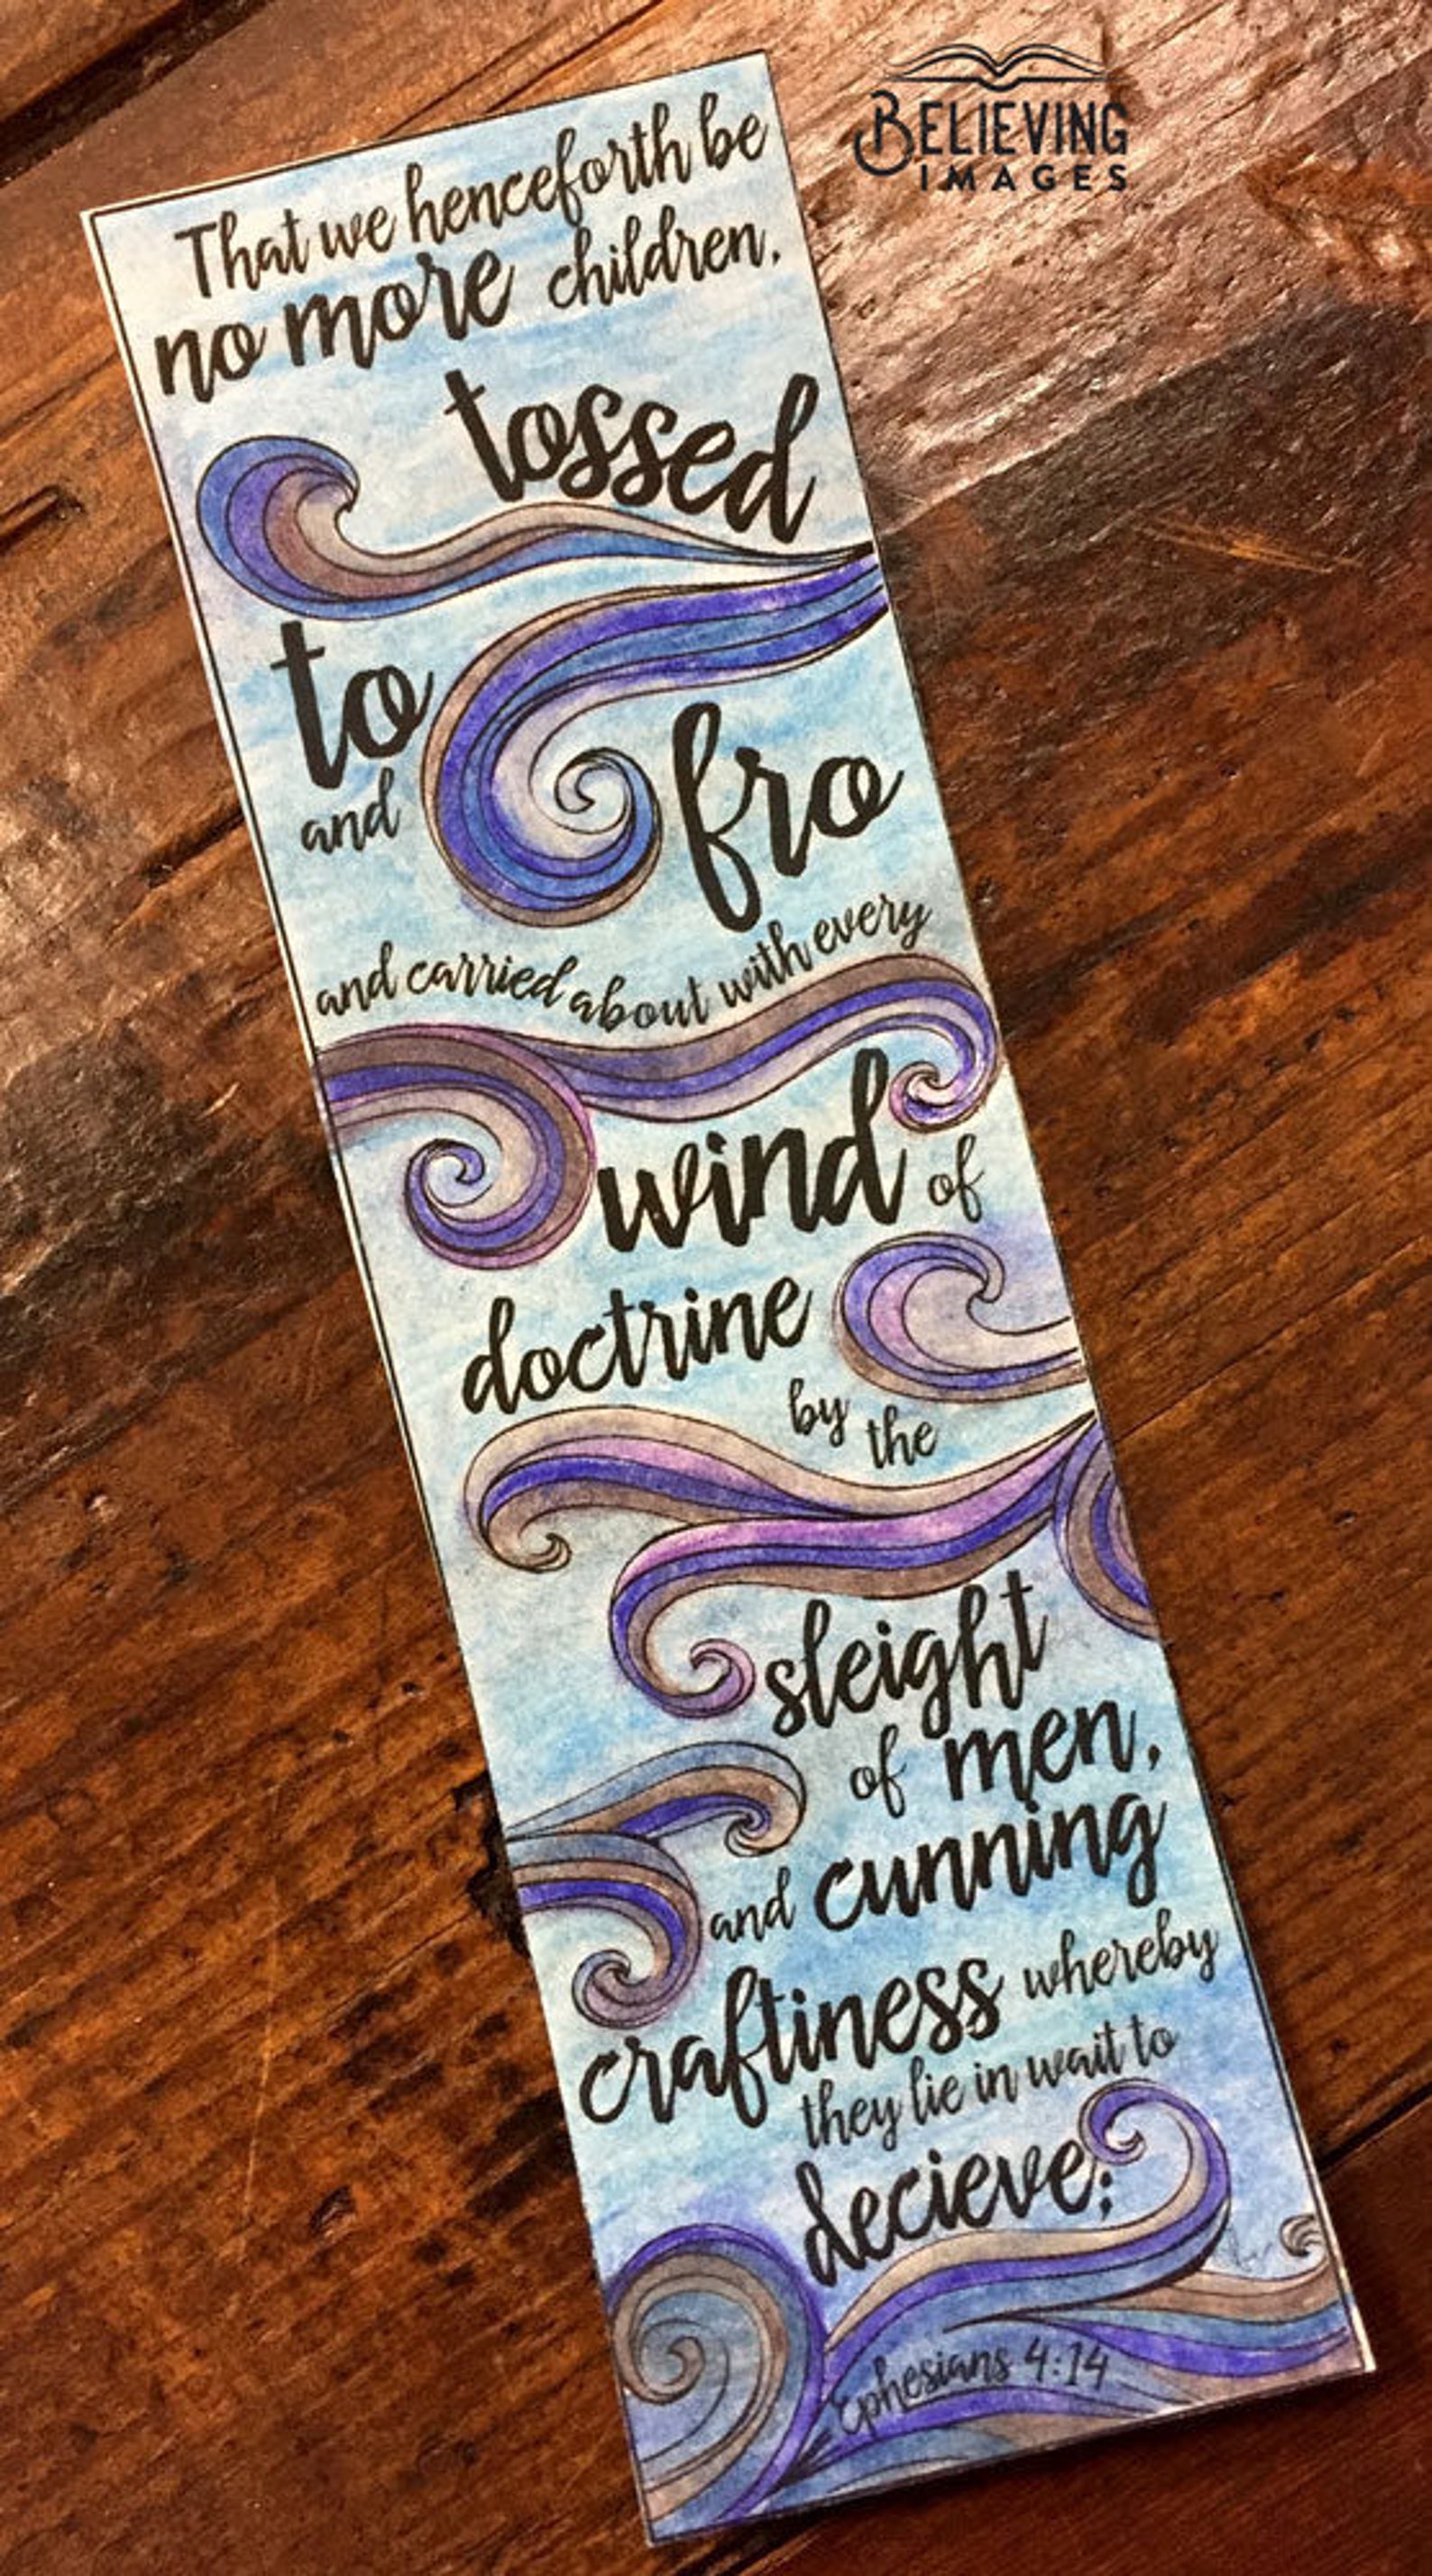 BELIEVING
IMAGES
That we henceforth be
no more children,
tossed
to
and
fro
and carried about with every
wind of
doctrine
by the
sleight
of men,
and cunning
craftiness whereby
they lie in wait to
decieve;
Ephesians 4:14